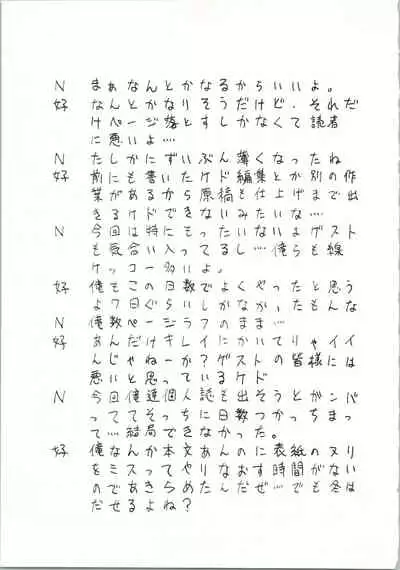 N まぁなんとかなるからいいよ。
好 なんとかなりそうだけど、それだ
けページ落とすしかなくて読者
に悪いよ…
N たしかにずいぶん薄くなったね
好 前にも書いたケド編集とか別の作
業があるから原稿も仕上げまで出
きるケドできないみたいな…
N 今回は特にもったいないよゲスト
も気合い入ってるし…俺らも線
ケッコー多いよ。
好 俺もこの日数でよくやったと思う
よ7日ぐらいしかなかったもんな
N 俺数ページラフのまま…
好 あんだけキレイにかいてりゃイイ
んじゃねーか?ゲストの皆様には
悪いと思っているケド
N 今回俺達個人誌も出そうとがンバ
っててそっちに日数つかっちまっ
て…結局できなかった。
好 俺なんか本文あんのに表紙のヌリ
をミスってやりなおす時間がない
のであきらめたんだぜ…でも冬は
だせるよね?